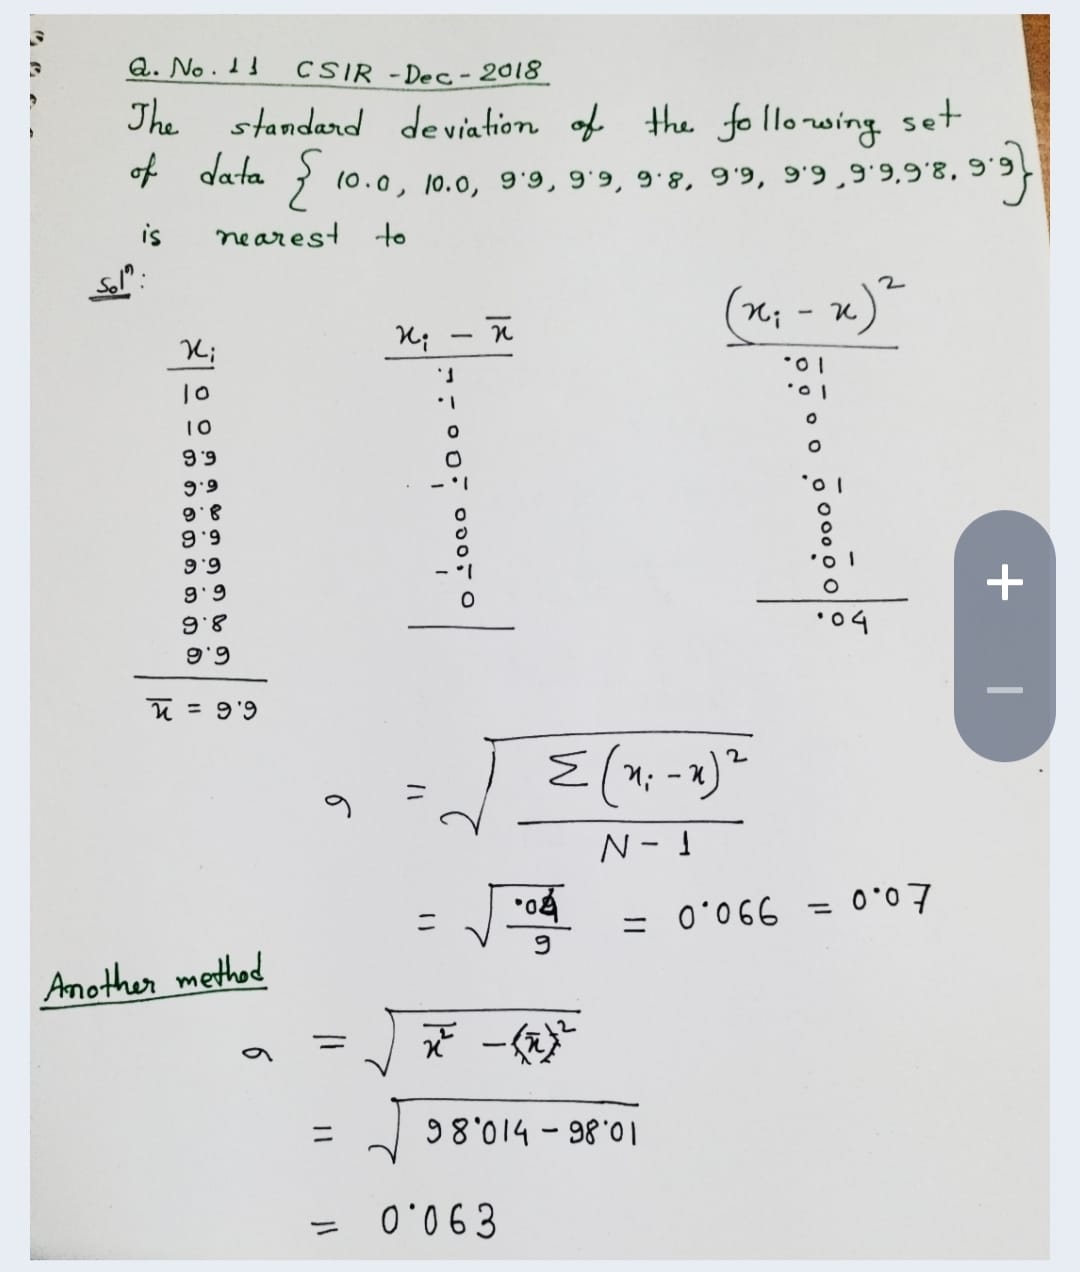 Q. No. 11 CSIR - Dec - 2018
The standard deviation of the following set
of data { 10.0, 10.0, 9.9, 9.9, 9.8, 9.9, 9.9, 9.9, 9.8, 9.9 }
is nearest to
Solⁿ:
xᵢ
10
10
9.9
9.9
9.8
9.9
9.9
9.9
9.8
9.9
x̄ = 9.9
xᵢ - x̄
.1
.1
0
0
-.1
0
0
0
-.1
0
(xᵢ - x)²
.01
.01
0
0
.01
0
0
0
.01
0
.04
σ = √(Σ(xᵢ - x)² / N - 1)
= √(.04 / 9) = 0.066 = 0.07
Another method
σ = √(x̄² - (x̄)²)
= √(98.014 - 98.01)
= 0.063
+
-